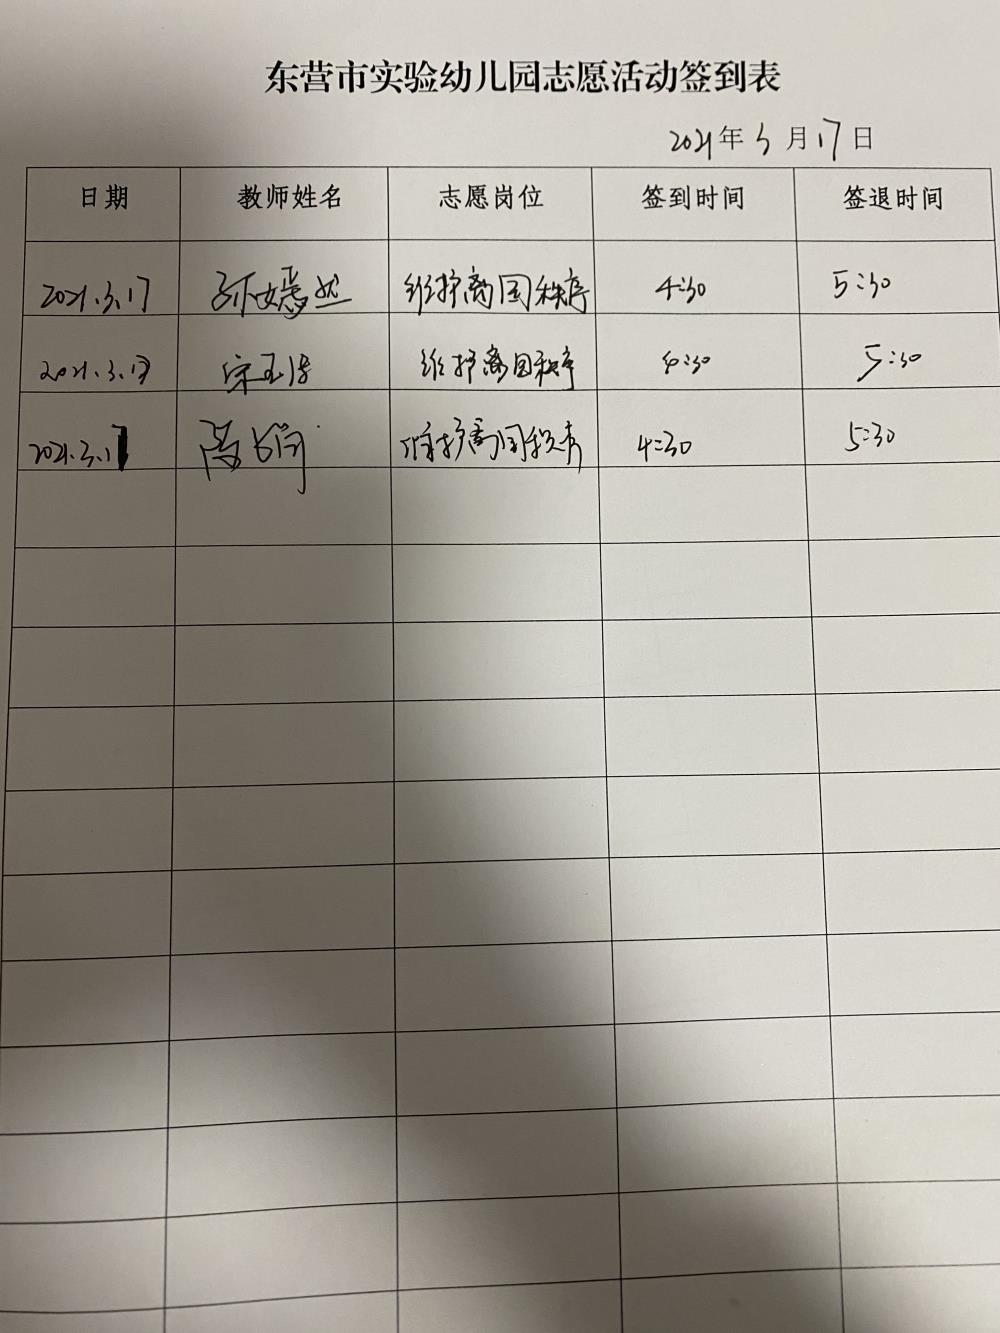 东营市实验幼儿园志愿活动签到表
2021年3月17日
日期 教师姓名 志愿岗位 签到时间 签退时间
2021.3.17 孙嫣然 维护离园秩序 4:30 5:30
2021.3.17 宋玉 维护离园秩序 4:30 5:30
2021.3.17 维护离园秩序 4:30 5:30